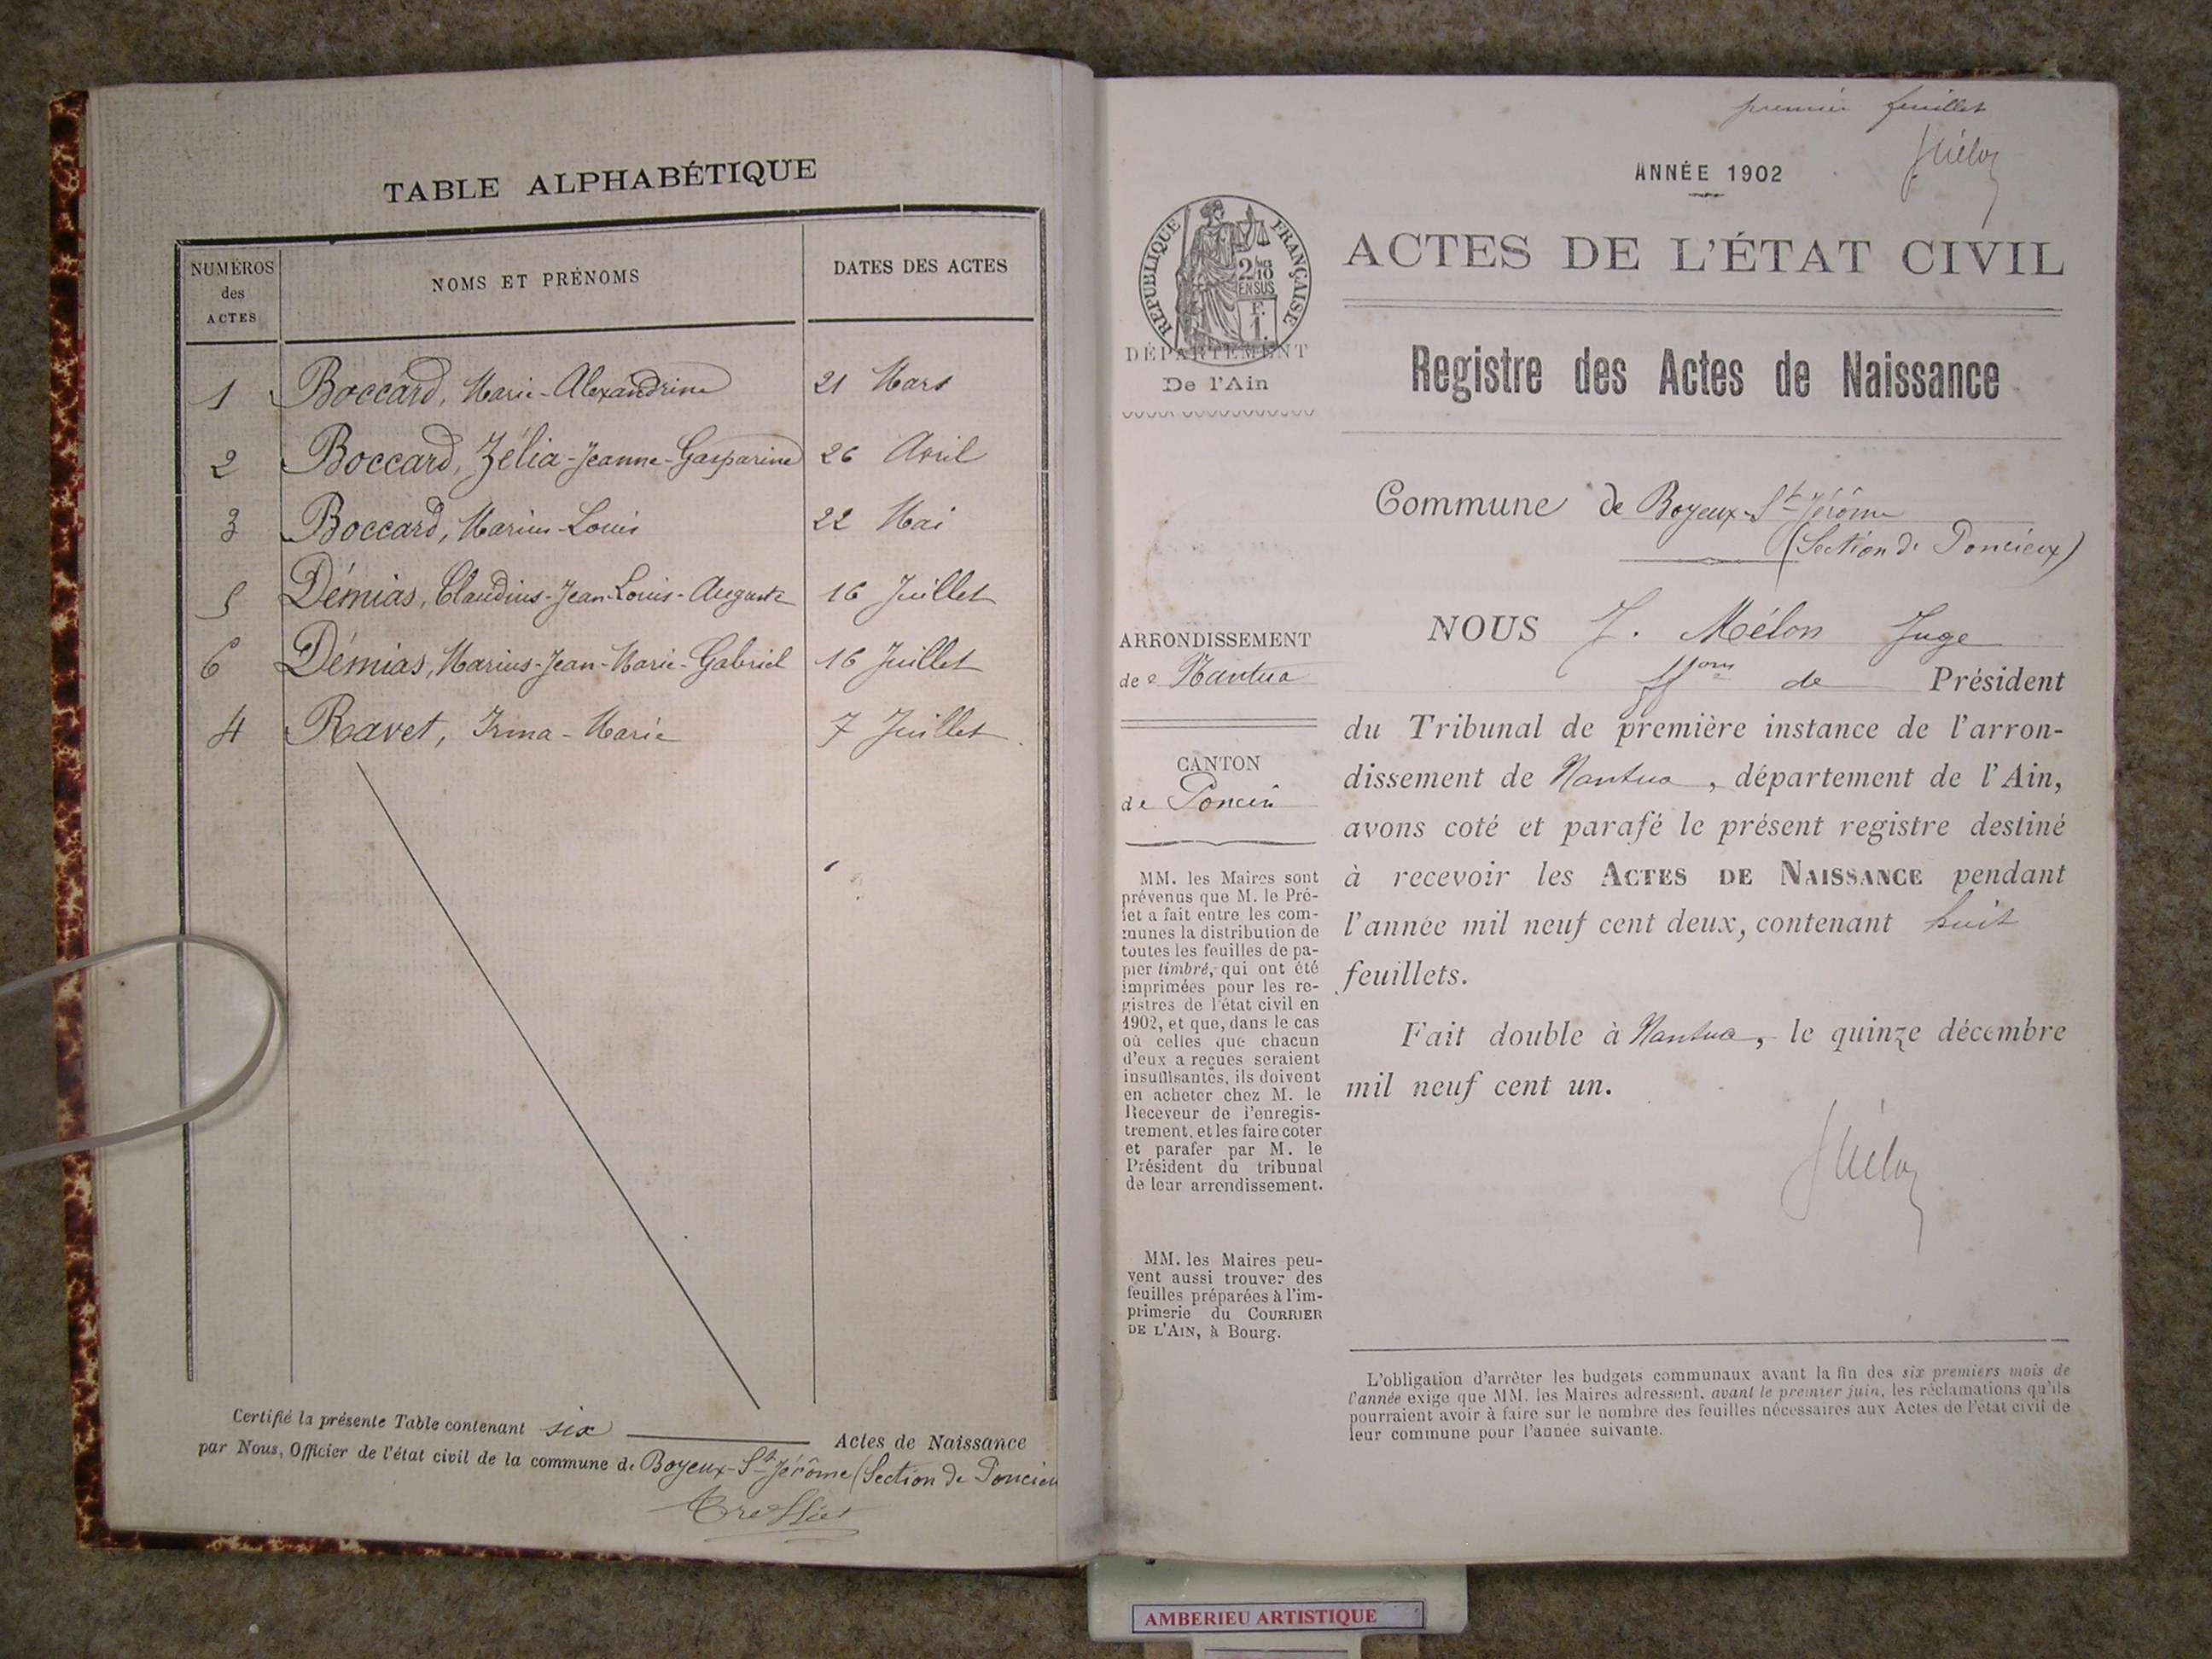 TABLE ALPHABÉTIQUE
NUMÉROS des ACTES
NOMS ET PRÉNOMS
DATES DES ACTES
1 Boccard, Marie-Alexandrine 21 Mars
2 Boccard, Zélia-Jeanne-Gasparine 26 Avril
3 Boccard, Marius-Louis 22 Mai
5 Démias, Claudius-Jean-Louis-Auguste 16 Juillet
6 Démias, Marius-Jean-Marie-Gabriel 16 Juillet
4 Ravet, Irma-Marie 7 Juillet
Certifié la présente Table contenant six Actes de Naissance
par Nous, Officier de l'état civil de la commune de Boyeux-St-Jérôme (Section de Poncieu
premier feuillet
ANNÉE 1902
RÉPUBLIQUE FRANÇAISE
2 10
EN SUS
F.
1.
ACTES DE L'ÉTAT CIVIL
DÉPARTEMENT
De l'Ain
Registre des Actes de Naissance
Commune de Boyeux-St-Jérôme
(Section de Poncieux)
ARRONDISSEMENT
de Nantua
CANTON
de Poncin
MM. les Maires sont
prévenus que M. le Pré-
fet a fait entre les com-
munes la distribution de
toutes les feuilles de pa-
pier timbré, qui ont été
imprimées pour les re-
gistres de l'état civil en
1902, et que, dans le cas
où celles que chacun
d'eux a reçues seraient
insuffisantes, ils doivent
en acheter chez M. le
Receveur de l'enregis-
trement, et les faire coter
et parafer par M. le
Président du tribunal
de leur arrondissement.
MM. les Maires peu-
vent aussi trouver des
feuilles préparées à l'im-
primerie du COURRIER
DE L'AIN, à Bourg.
NOUS J. Mélon Juge
ffons de Président
du Tribunal de première instance de l'arron-
dissement de Nantua, département de l'Ain,
avons coté et parafé le présent registre destiné
à recevoir les ACTES DE NAISSANCE pendant
l'année mil neuf cent deux, contenant huit
feuillets.
Fait double à Nantua, le quinze décembre
mil neuf cent un.
L'obligation d'arrêter les budgets communaux avant la fin des six premiers mois de
l'année exige que MM. les Maires adressent, avant le premier juin, les réclamations qu'ils
pourraient avoir à faire sur le nombre des feuilles nécessaires aux Actes de l'état civil de
leur commune pour l'année suivante.
AMBERIEU ARTISTIQUE